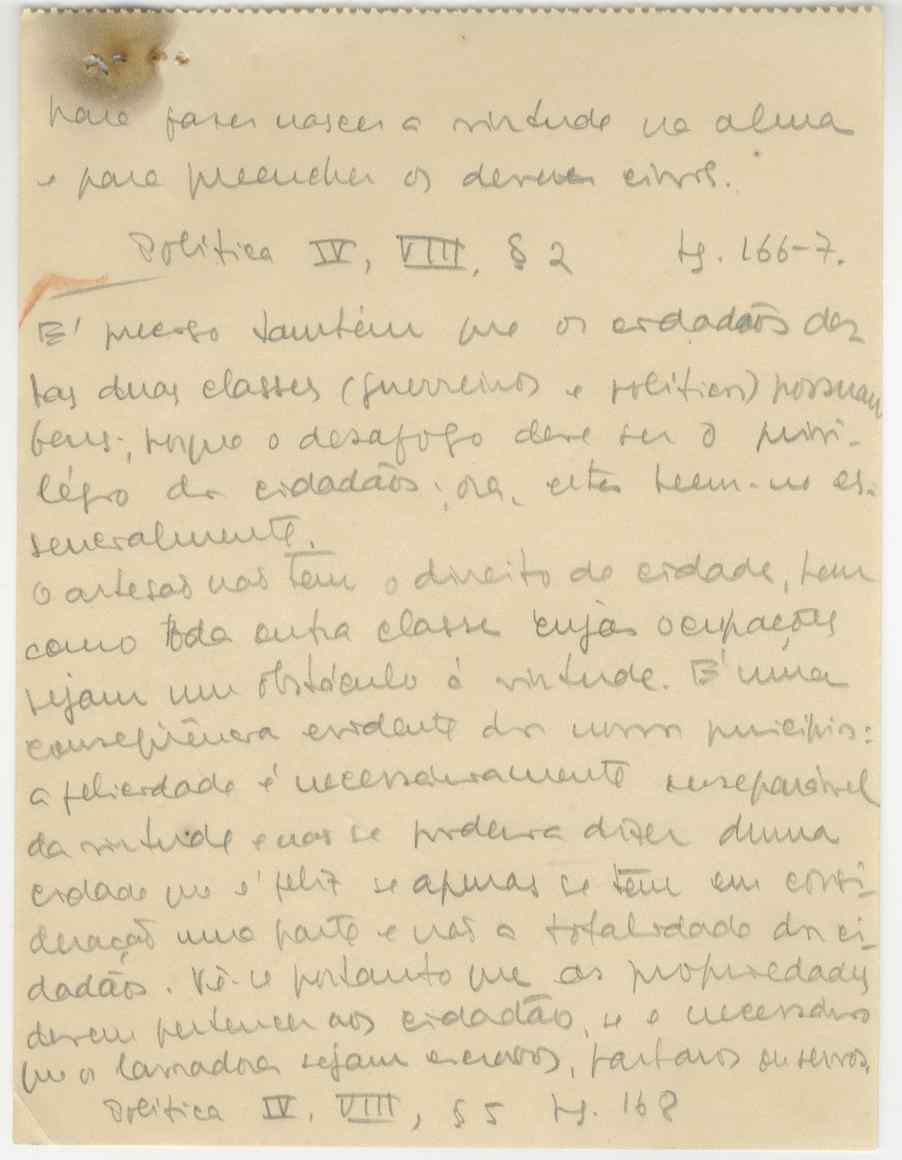 para fazer nascer a virtude na alma
e para preencher os deveres civis.
Política IV, VIII, § 2 pg. 166-7.
E' preciso também que os cidadãos des
tas duas classes (guerreiros e políticos) possuam
bens; porque o desafogo deve ser o privi-
légio dos cidadãos; ora, estes teem-no es-
sencialmente.
O artesão não tem o direito de cidade, bem
como toda outra classe cujas ocupações
sejam um obstáculo á virtude. E' uma
conseqüência evidente dos nossos principios:
a felicidade é necessáriamente inseparável
da virtude e não se poderia dizer duma
cidade que é feliz se apenas se tem em consi-
deração uma parte e não a totalidade dos ci-
dadãos. Vê-se portanto que as propriedades
devem pertencer aos cidadãos, se é necessário
que os lavradores sejam escravos, bárbaros ou servos.
Política IV, VIII, § 5 pg. 168